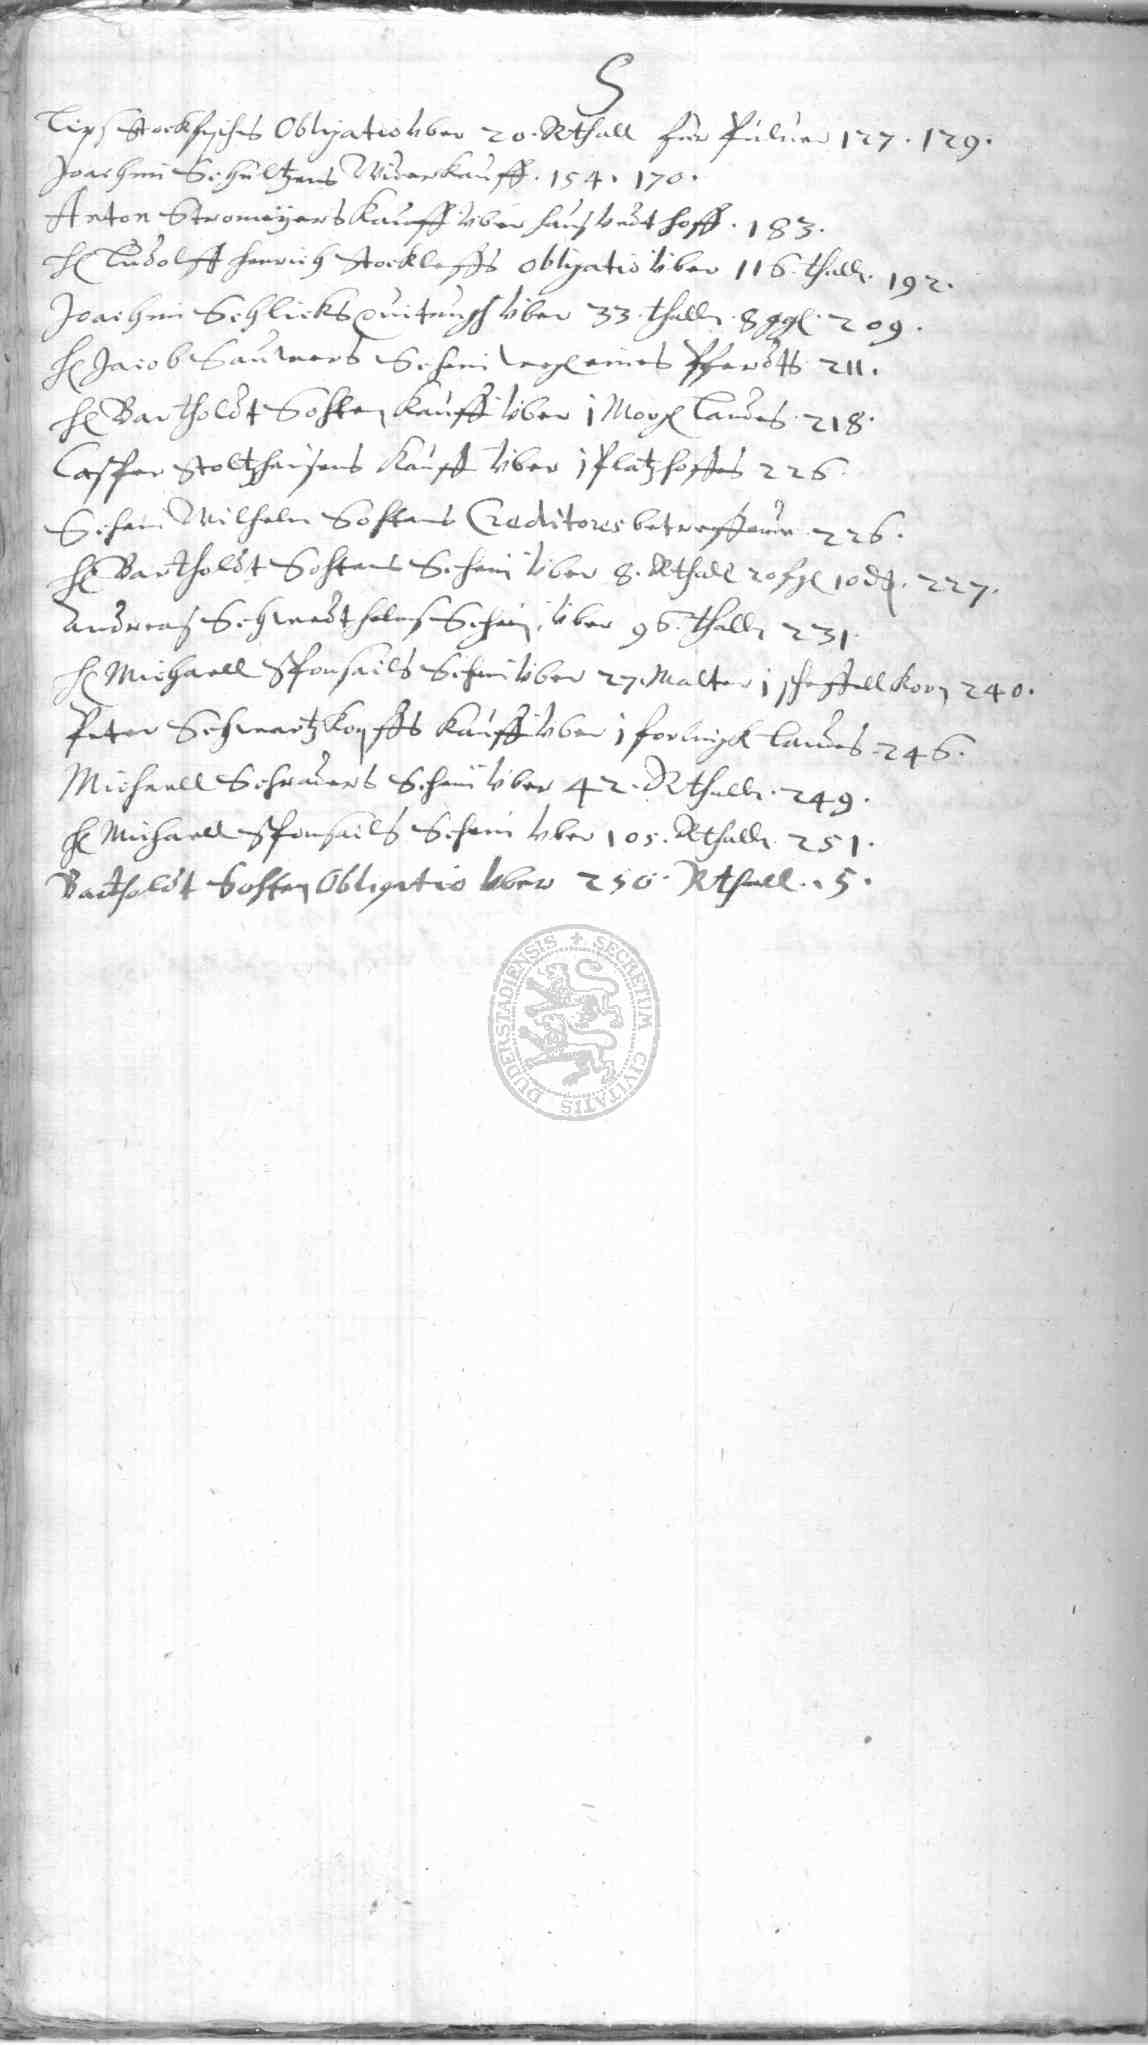 S
Lips Stockfisches Obligatio vber 20. Rthall für Puluer 127. 129.
Joachim Schultzens Widerkauff. 154. 170.
Anton Stromeÿers Kauff vber hauß vndt hoff. 183.
H. Ludolff Henrich Stockleffs Obligatio vber 116. thall. 192.
Joachim Schlicks quitungh vber 33. thall. 8 ggl. 209.
H. Jacob Sauwers Schein weg. eines Pferdts 211.
H. Bartholdt Sohten Kauff vber j Morg. Landes. 218.
Casper Stoltzhensens Kauff vber j Platz hoffes 226.
Schein Wilhelm Sohtens Creditores betreffend 226.
H. Bartholdt Sohtens Schein vber 8. Rthall 20 10 227.
Andreaß Schwerdthelms Schein vber 96. thall. 231.
H. Michaell Sponsails Schein vber 27. Malter j scheffell Korn 240.
Peter Schwartzkopffs Kauff vber j forlingk Landes. 246.
Michaell Schraders Schein vber 42. Rthall. 249.
H. Michaell Sponsails Schein vber 105. Rthall. 251.
Bartholdt Sohten Obligatio vber 250. Rthall. 5.
SECRETUM CIVITATIS DUDERSTADIENSIS